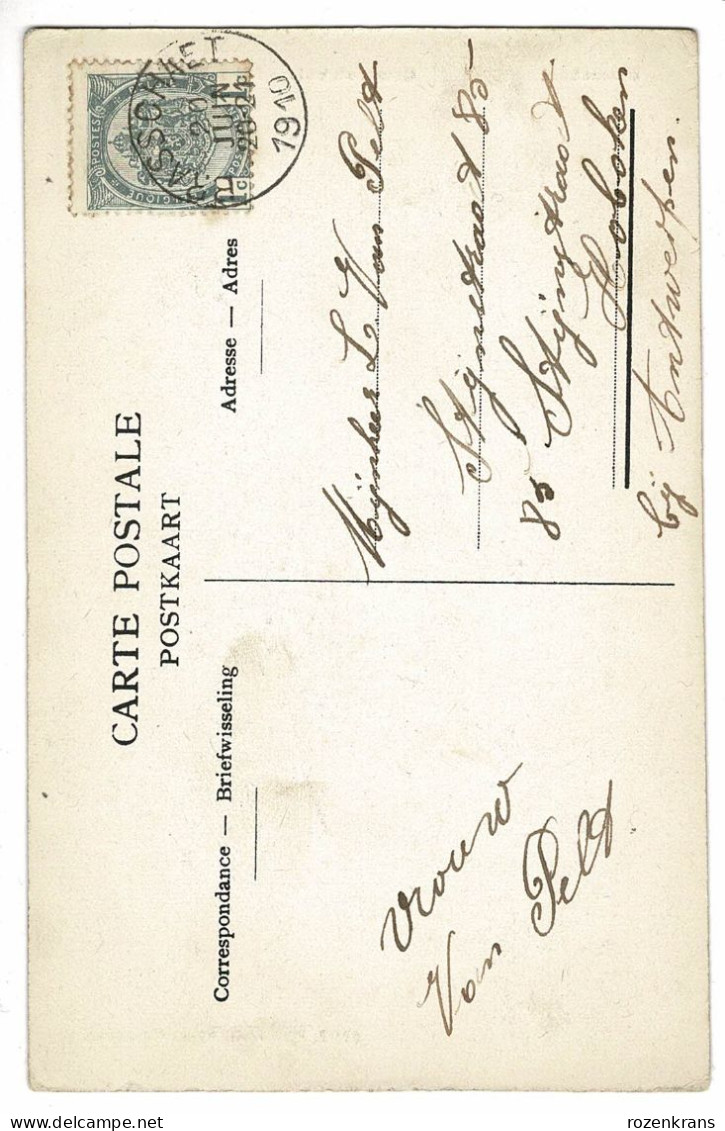 CARTE POSTALE
POSTKAART
Correspondance — Briefwisseling
Adresse — Adres
BRASSCHAET
20
JUIN
1910
POSTES
Mijnheer L Van Pelt
Stijnstraat 85
85 Stijnstraat
Hoboken
bij Antwerpen.
Vrouw
Van Pelt
rozenkrans